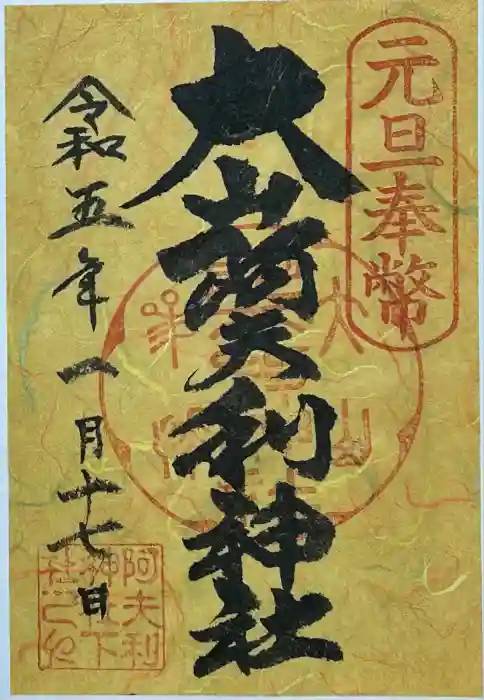 元旦奉幣
大山阿夫利神社
令和五年一月十七日
阿夫利
神社下
社之印